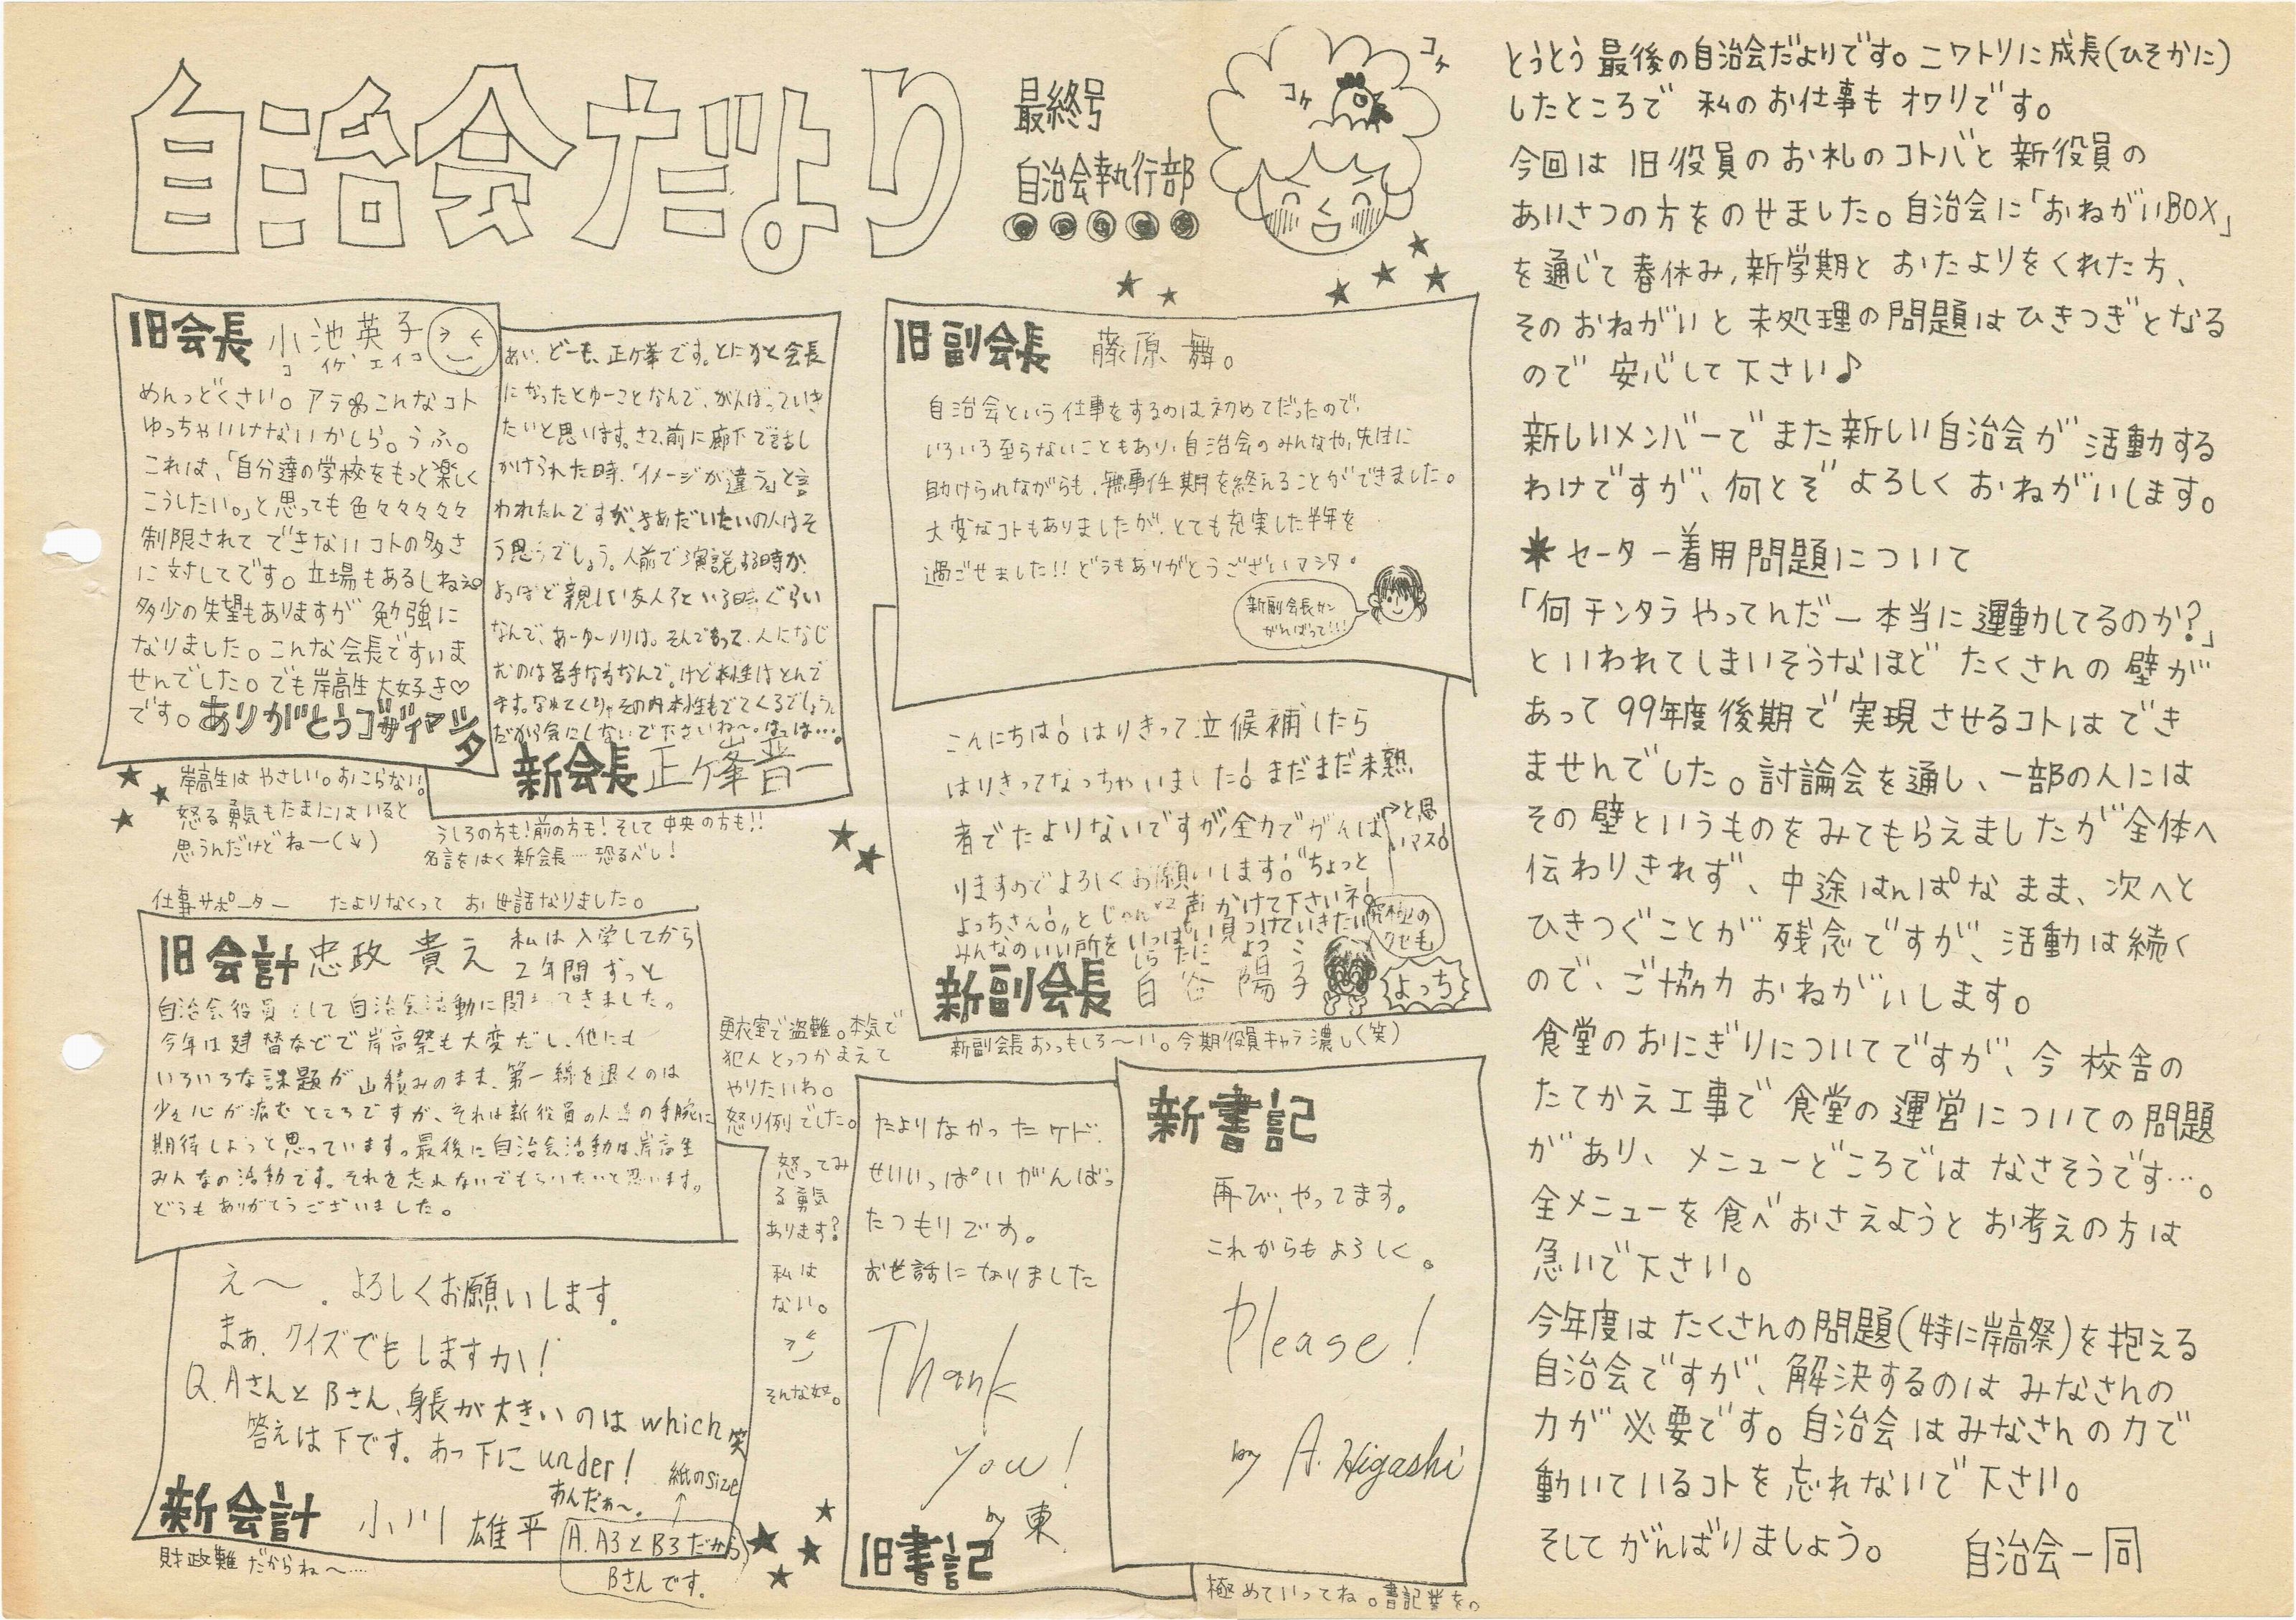 自治会だより
最終号
自治会執行部
コケ
コケ
旧会長 小池英子
コ イケ エイコ
めんっどくさい。アラ♂こんなコト
ゆっちゃいけないかしら。うふ。
これは、「自分達の学校をもっと楽しく
こうしたい。」と思っても色々々々々々
制限されて できないコトの多さ
に対してです。立場もあるしねぇ
多少の失望もありますが 勉強に
なりました。こんな会長ですいま
せんでした。でも岸高生大好き♡
です。ありがとうゴザイマシタ
岸高生は やさしい。おこらない!
怒る勇気もたまにはいると
思うんだけどねー(↓)
あい、どーも、正ヶ峯です。とにかく会長
になったとゆーことなんで、がんばっていき
たいと思います。さて、前に廊下で話し
かけられた時、「イメージが違う」と言
われたんですが、まあだいたいの人はそ
う思うでしょう。人前で演説する時か
よっぽど親しい友人といる時ぐらい
なんで、あーゆーノリは。そんでもって、人になじ
むのは苦手な方なんで。けど本性はとんで
ます。なれてくりゃその内本性もでてくるでしょう。
だから気にしないで下さいね〜。実は…。
新会長 正ヶ峯晋一
うしろの方も!前の方も!そして中央の方も!!
名言をはく新会長…恐るべし!
旧副会長 藤原 舞。
自治会という仕事をするのは初めてだったので、
いろいろ至らないこともあり、自治会のみんなや、先生に
助けられながらも、無事任期を終えることができました。
大変なコトもありましたが、とても充実した半年を
過ごせました!!どうもありがとうございマシタ。
新副会長サン
がんばって!!!
こんにちは!はりきって立候補したら
はりきってなっちゃいました!まだまだ未熟
者でたよりないですが、全力でがんば
→と思
いマス!
りますのでよろしくお願いします!"ちょっと
よっちさん!"とじゃんじゃん声かけて下さいネ!
みんなのいい所をいっぱい見つけていきたい
究極の
クセ毛
新副会長 白谷 陽子
しら たに よう こ
よっち
新副会長おっもしろ〜い。今期役員キャラ濃し(笑)
仕事サポーター たよりなくって お世話なりました。
旧会計 忠政 貴え
私は入学してから
2年間ずっと
自治会役員として自治会活動に関ってきました。
今年は建替などで岸高祭も大変だし、他にも
いろいろな課題が山積みのまま、第一線を退くのは
少々心が病むところですが、それは新役員の人達の手腕に
期待しようと思っています。最後に自治会活動は、岸高生
みんなの活動です。それを忘れないでもらいたいと思います。
どうもありがとうございました。
更衣室で盗難。本気で
犯人とっつかまえて
やりたいわ。
怒り例でした。
怒ってみ
る勇気
あります?
私は
ない。
そんな奴。
え〜、よろしくお願いします。
まぁ、クイズでもしますか!
Q. AさんとBさん、身長が大きいのは which 笑
答えは下です。あっ下に under!
あんだぁ〜。
紙のsize
新会計 小川 雄平
A. A3とB3だから
Bさんです。
財政難だからね〜…
たよりなかったケド、
せいいっぱいがんばっ
たつもりです。
お世話になりました
Thank
you!
by 東
旧書記
新書記
再び、やってます。
これからもよろしく。
Please!
by A. Higashi
極めていってね。書記業を。
とうとう最後の自治会だよりです。ニワトリに成長(ひそかに)
したところで 私のお仕事も オワリです。
今回は 旧役員のお礼のコトバと 新役員の
あいさつの方をのせました。自治会に「おねがいBOX」
を通じて 春休み,新学期と おたよりをくれた方、
そのおねがいと 未処理の問題はひきつぎとなる
ので 安心して下さい♪
新しいメンバーでまた新しい自治会が 活動する
わけですが、何とぞ よろしくおねがいします。
✱セーター着用問題について
「何チンタラやってんだー本当に運動してるのか?」
といわれてしまいそうなほど たくさんの壁が
あって 99年度後期で 実現させるコトはでき
ませんでした。討論会を通し、一部の人には
その壁というものをみてもらえましたが全体へ
伝わりきれず、中途はんぱなまま、次へと
ひきつぐことが 残念ですが、活動は続く
ので、ご協力おねがいします。
食堂のおにぎりについてですが、今校舎の
たてかえ工事で 食堂の運営についての問題
があり、メニューどころでは なさそうです…。
全メニューを食べおさえようと お考えの方は
急いで下さい。
今年度は たくさんの問題(特に岸高祭)を抱える
自治会ですが、解決するのは みなさんの
力が必要です。自治会はみなさんの力で
動いているコトを忘れないで下さい。
そしてがんばりましょう。 自治会一同